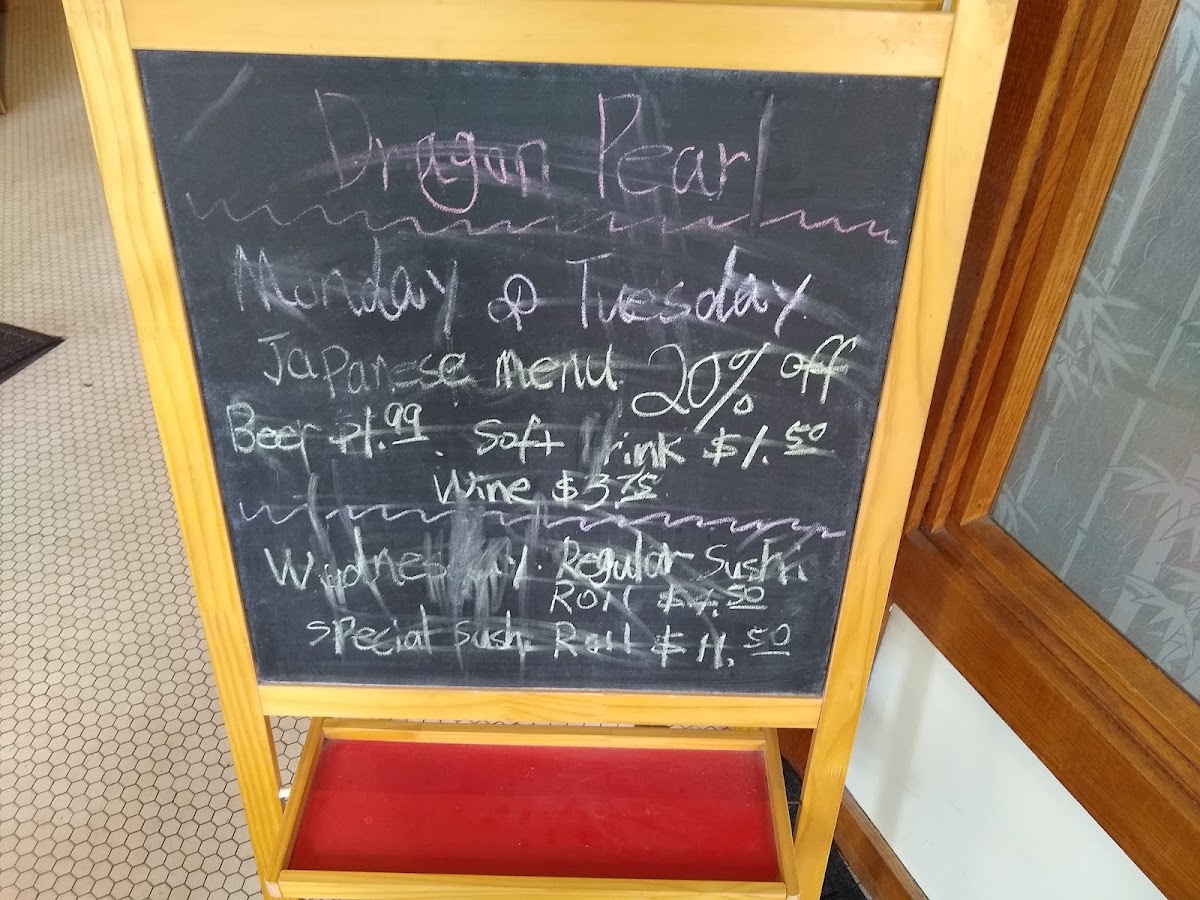 Dragon Pearl
Monday & Tuesday
Japanese menu 20% off
Beer $1.99. Soft Drink $1.50
Wine $3.75
Wednesday. Regular Sushi
Roll
Special Sushi Roll $11.50